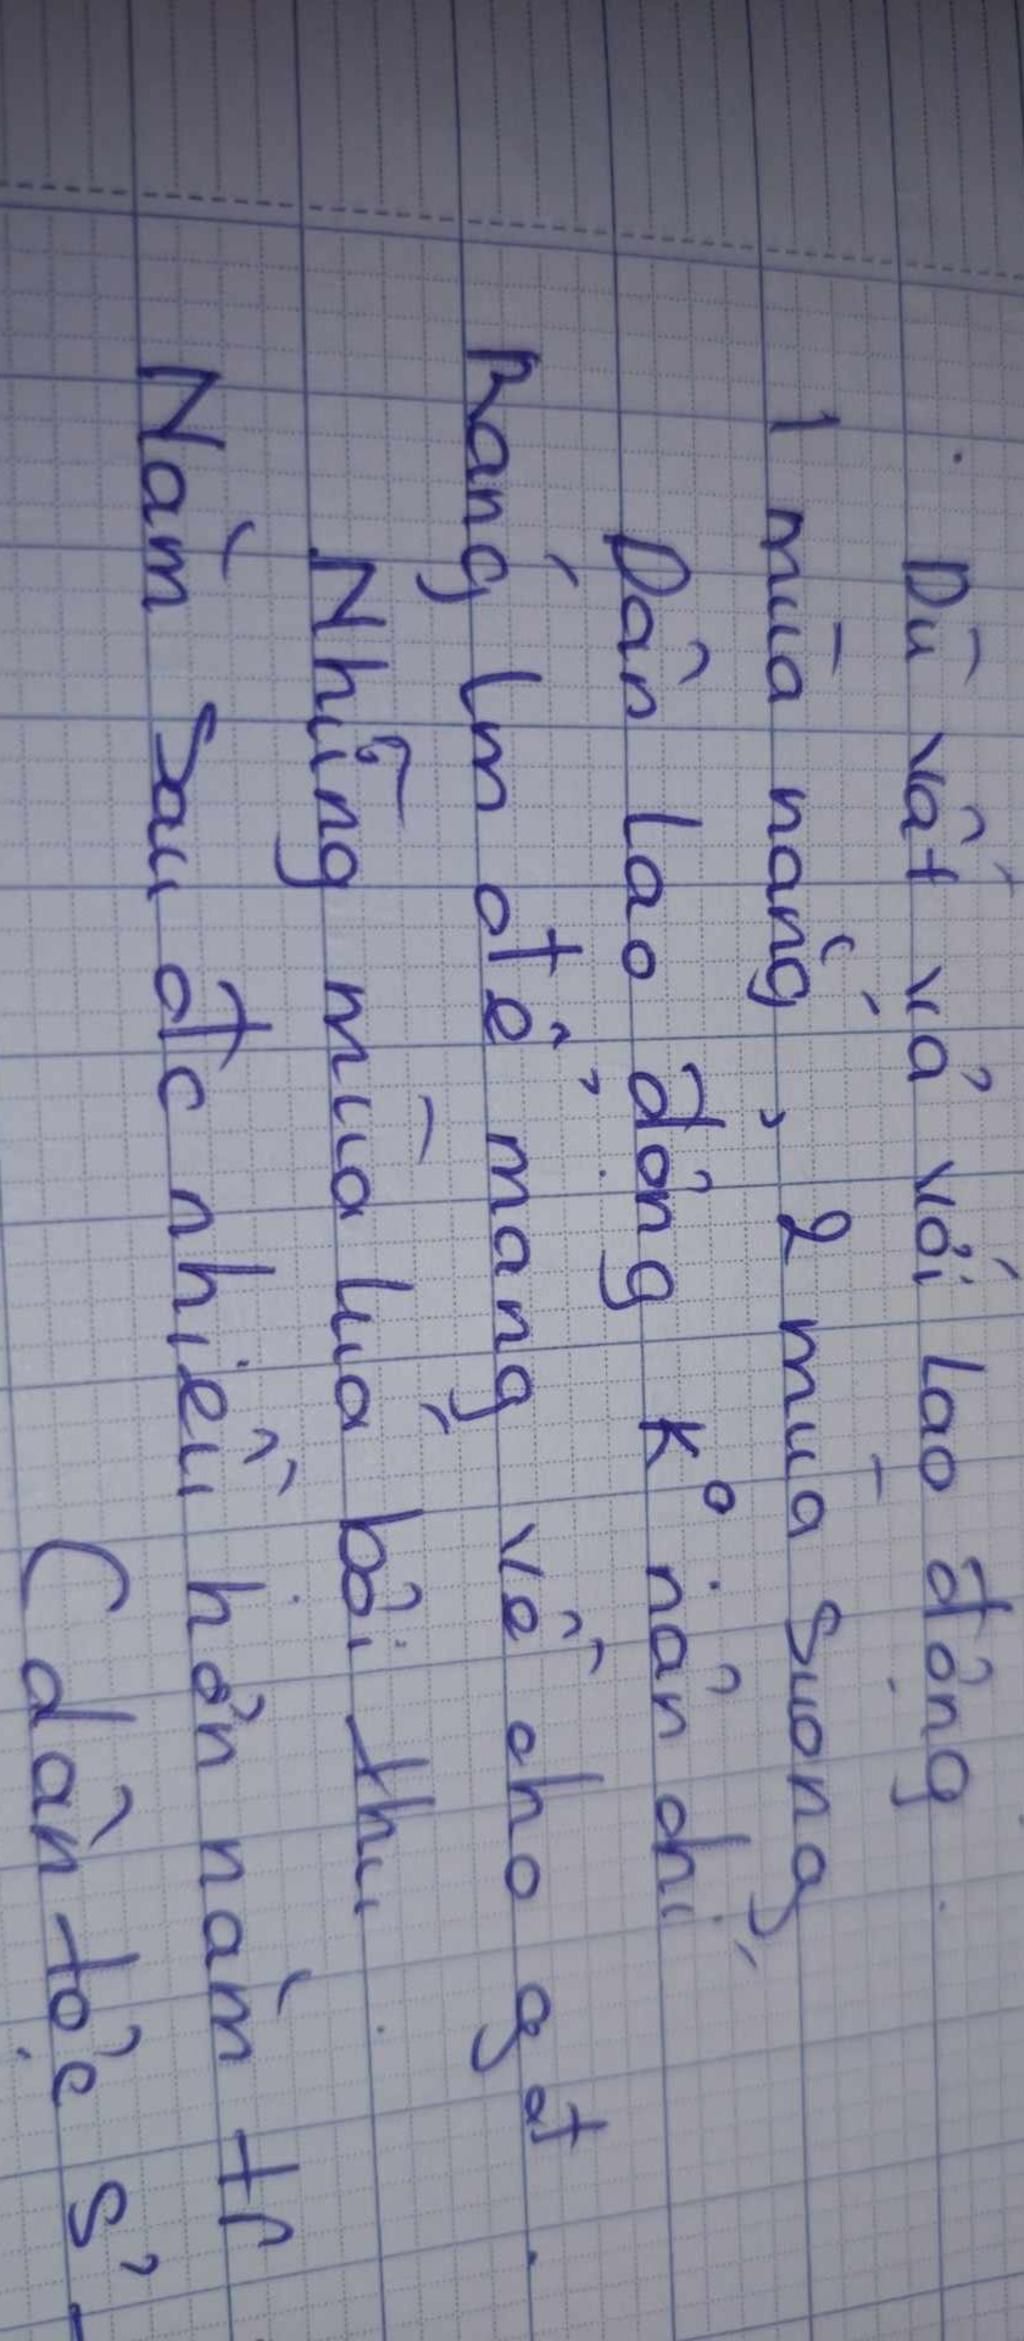 Dù vất vả với lao động
1 mùa nắng, 2 mùa sương
Dân lao động kº nản chí
Ráng lm để mang về cho gạt
Những mùa lúa bội thu
Năm sau đc nhiều hơn năm tr
(dân tộc